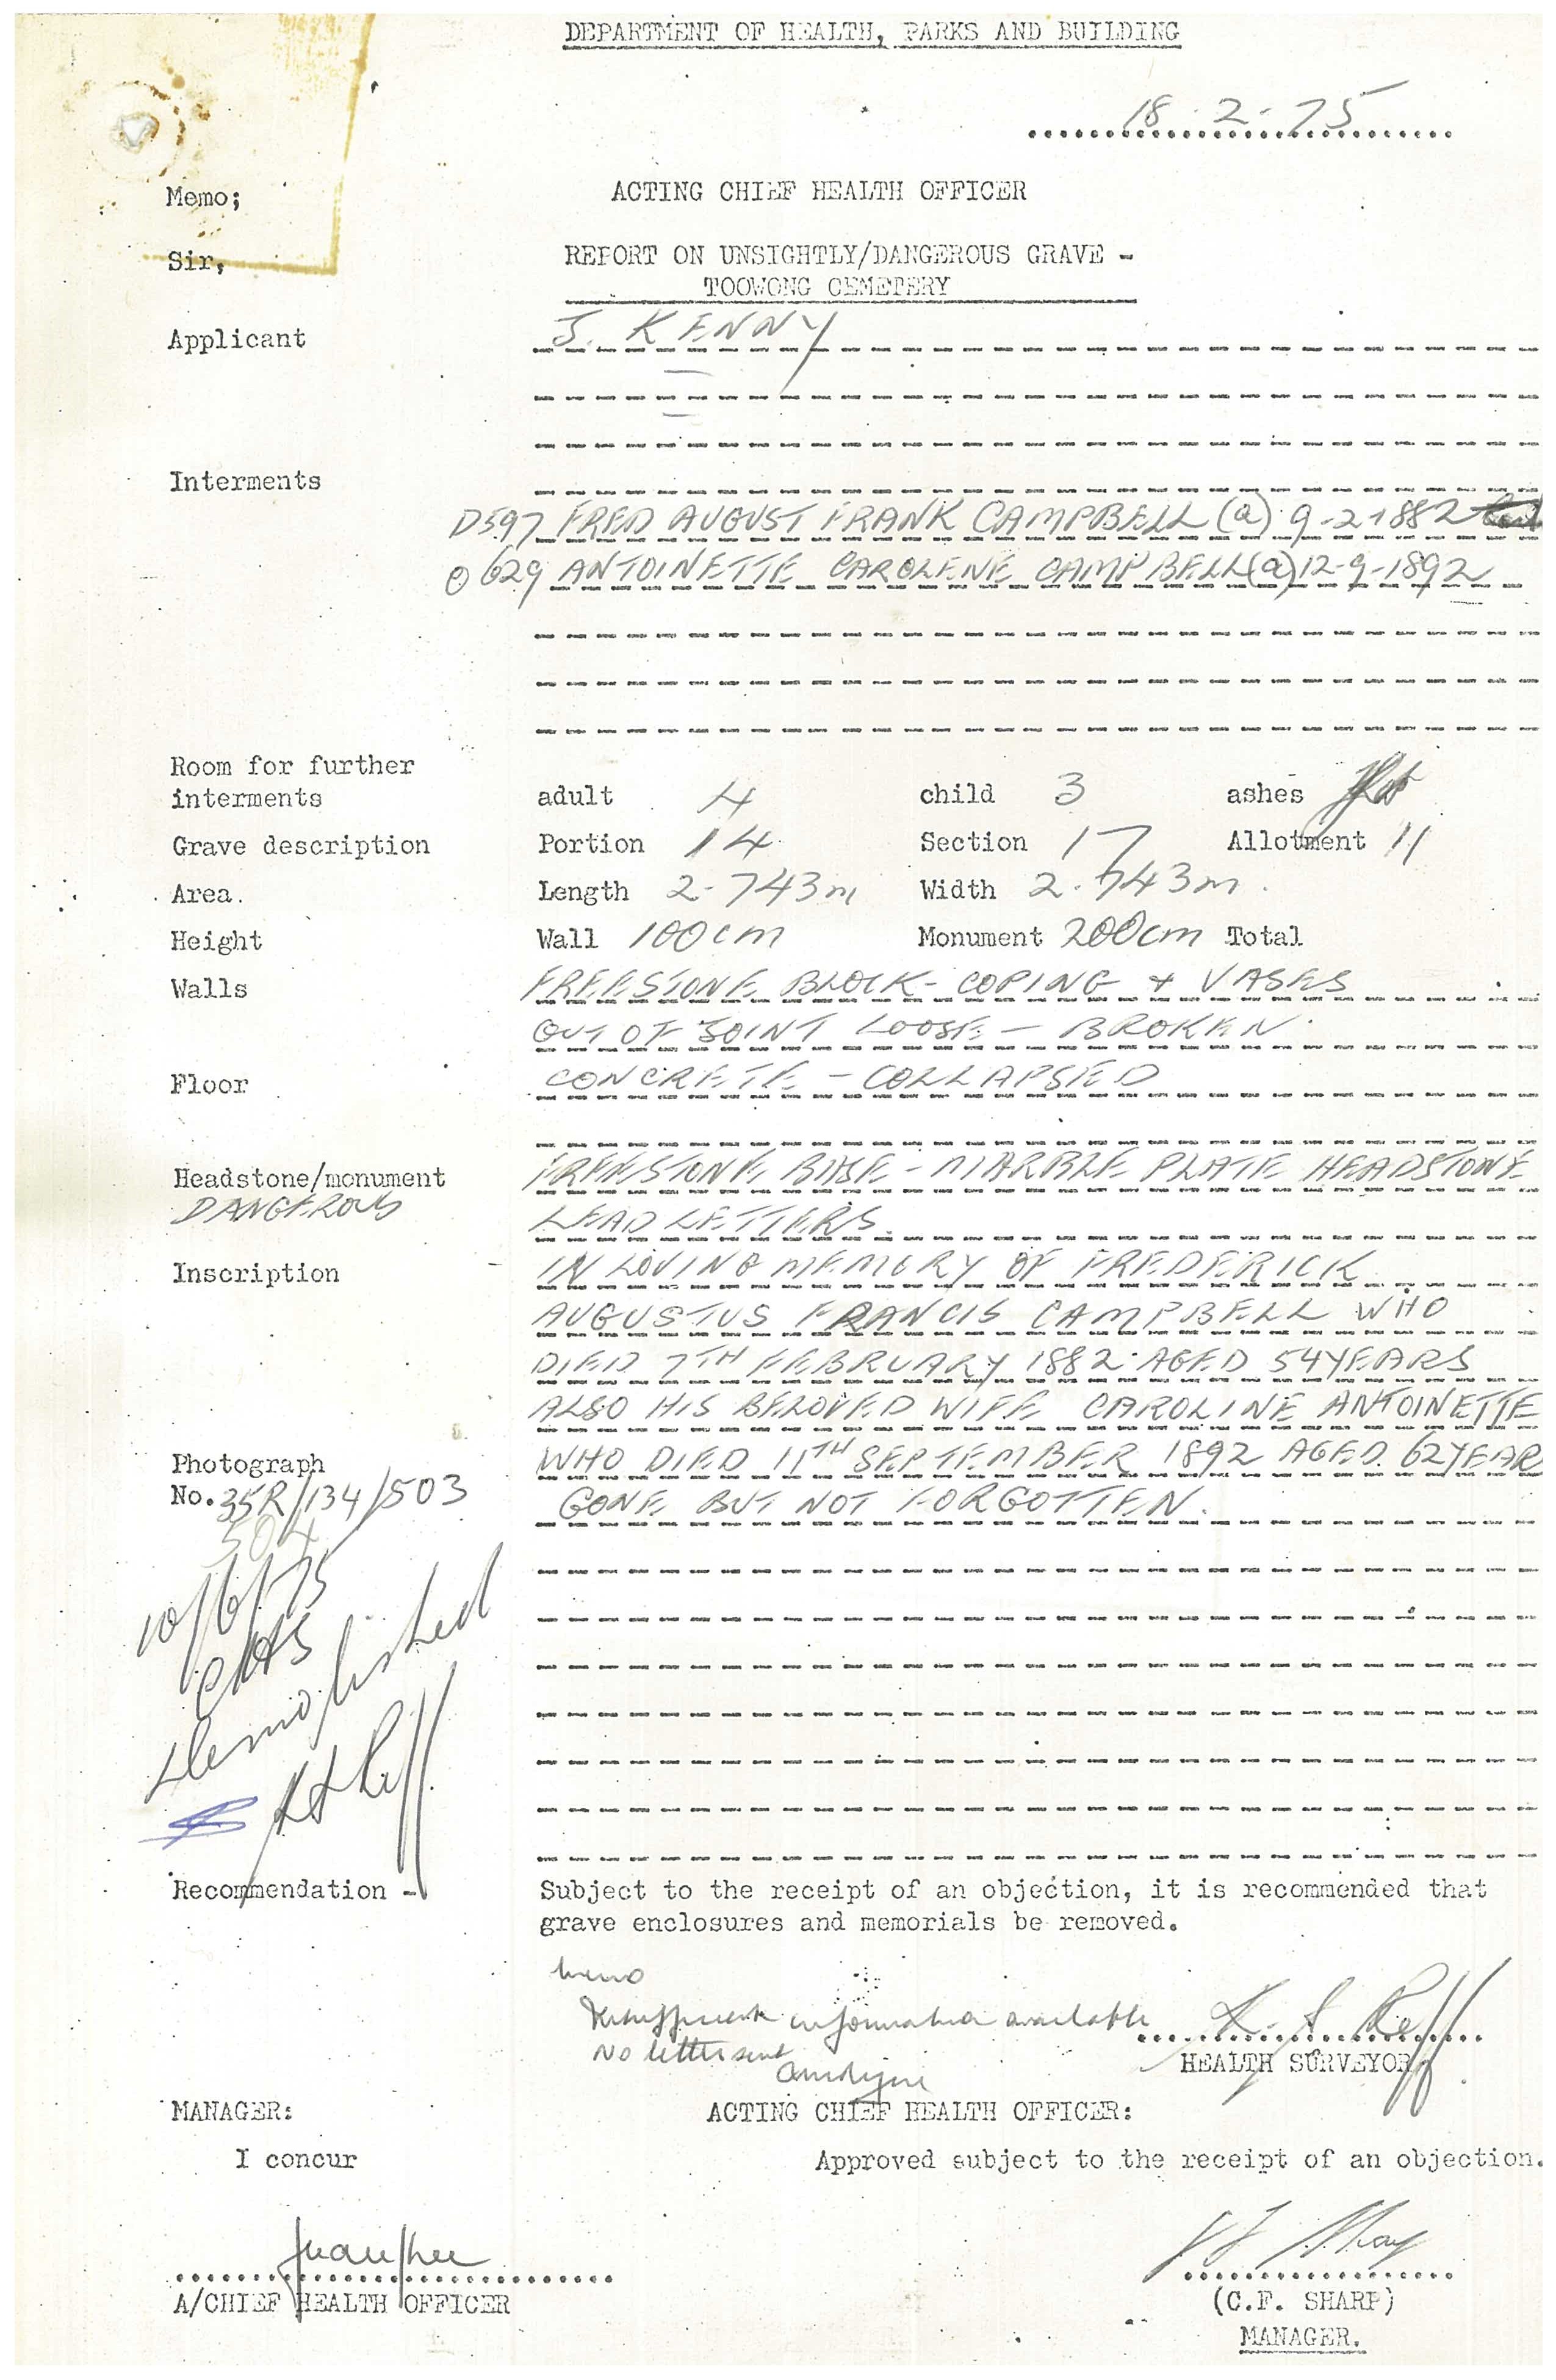 DEPARTMENT OF HEALTH, PARKS AND BUILDING
18-2-75
Memo;
ACTING CHIEF HEALTH OFFICER
Sir,
REPORT ON UNSIGHTLY/DANGEROUS GRAVE -
TOOWONG CEMETERY
Applicant J. KENNY
Interments
D597 FRED AUGUST FRANK CAMPBELL (a) 9-2-1882
629 ANTOINETTE CAROLENE CAMPBELL (a) 12-9-1892
Room for further
interments adult 4 child 3 ashes
Grave description Portion 14 Section 17 Allotment 11
Area. Length 2.743m Width 2.743m.
Height Wall 100cm Monument 200cm Total
Walls FREESTONE BLOCK - COPING + VASES
OUT OF JOINT LOOSE - BROKEN.
Floor CONCRETE - COLLAPSED
Headstone/monument FREESTONE BASE - MARBLE PLATE HEADSTONE
DANGEROUS LEAD LETTERS.
Inscription IN LOVING MEMORY OF FREDERICK
AUGUSTUS FRANCIS CAMPBELL WHO
DIED 7TH FEBRUARY 1882 AGED 54 YEARS
ALSO HIS BELOVED WIFE CAROLINE ANTOINETTE
Photograph WHO DIED 11TH SEPTEMBER 1892 AGED 62 YEAR
No. 35R/134/503 GONE BUT NOT FORGOTTEN.
504
10/6/75
Demolished
Recommendation - Subject to the receipt of an objection, it is recommended that
grave enclosures and memorials be removed.
memo
Insufficient information available
No letter sent
HEALTH SURVEYOR
MANAGER: ACTING CHIEF HEALTH OFFICER:
I concur Approved subject to the receipt of an objection.
A/CHIEF HEALTH OFFICER (C.F. SHARP)
MANAGER.